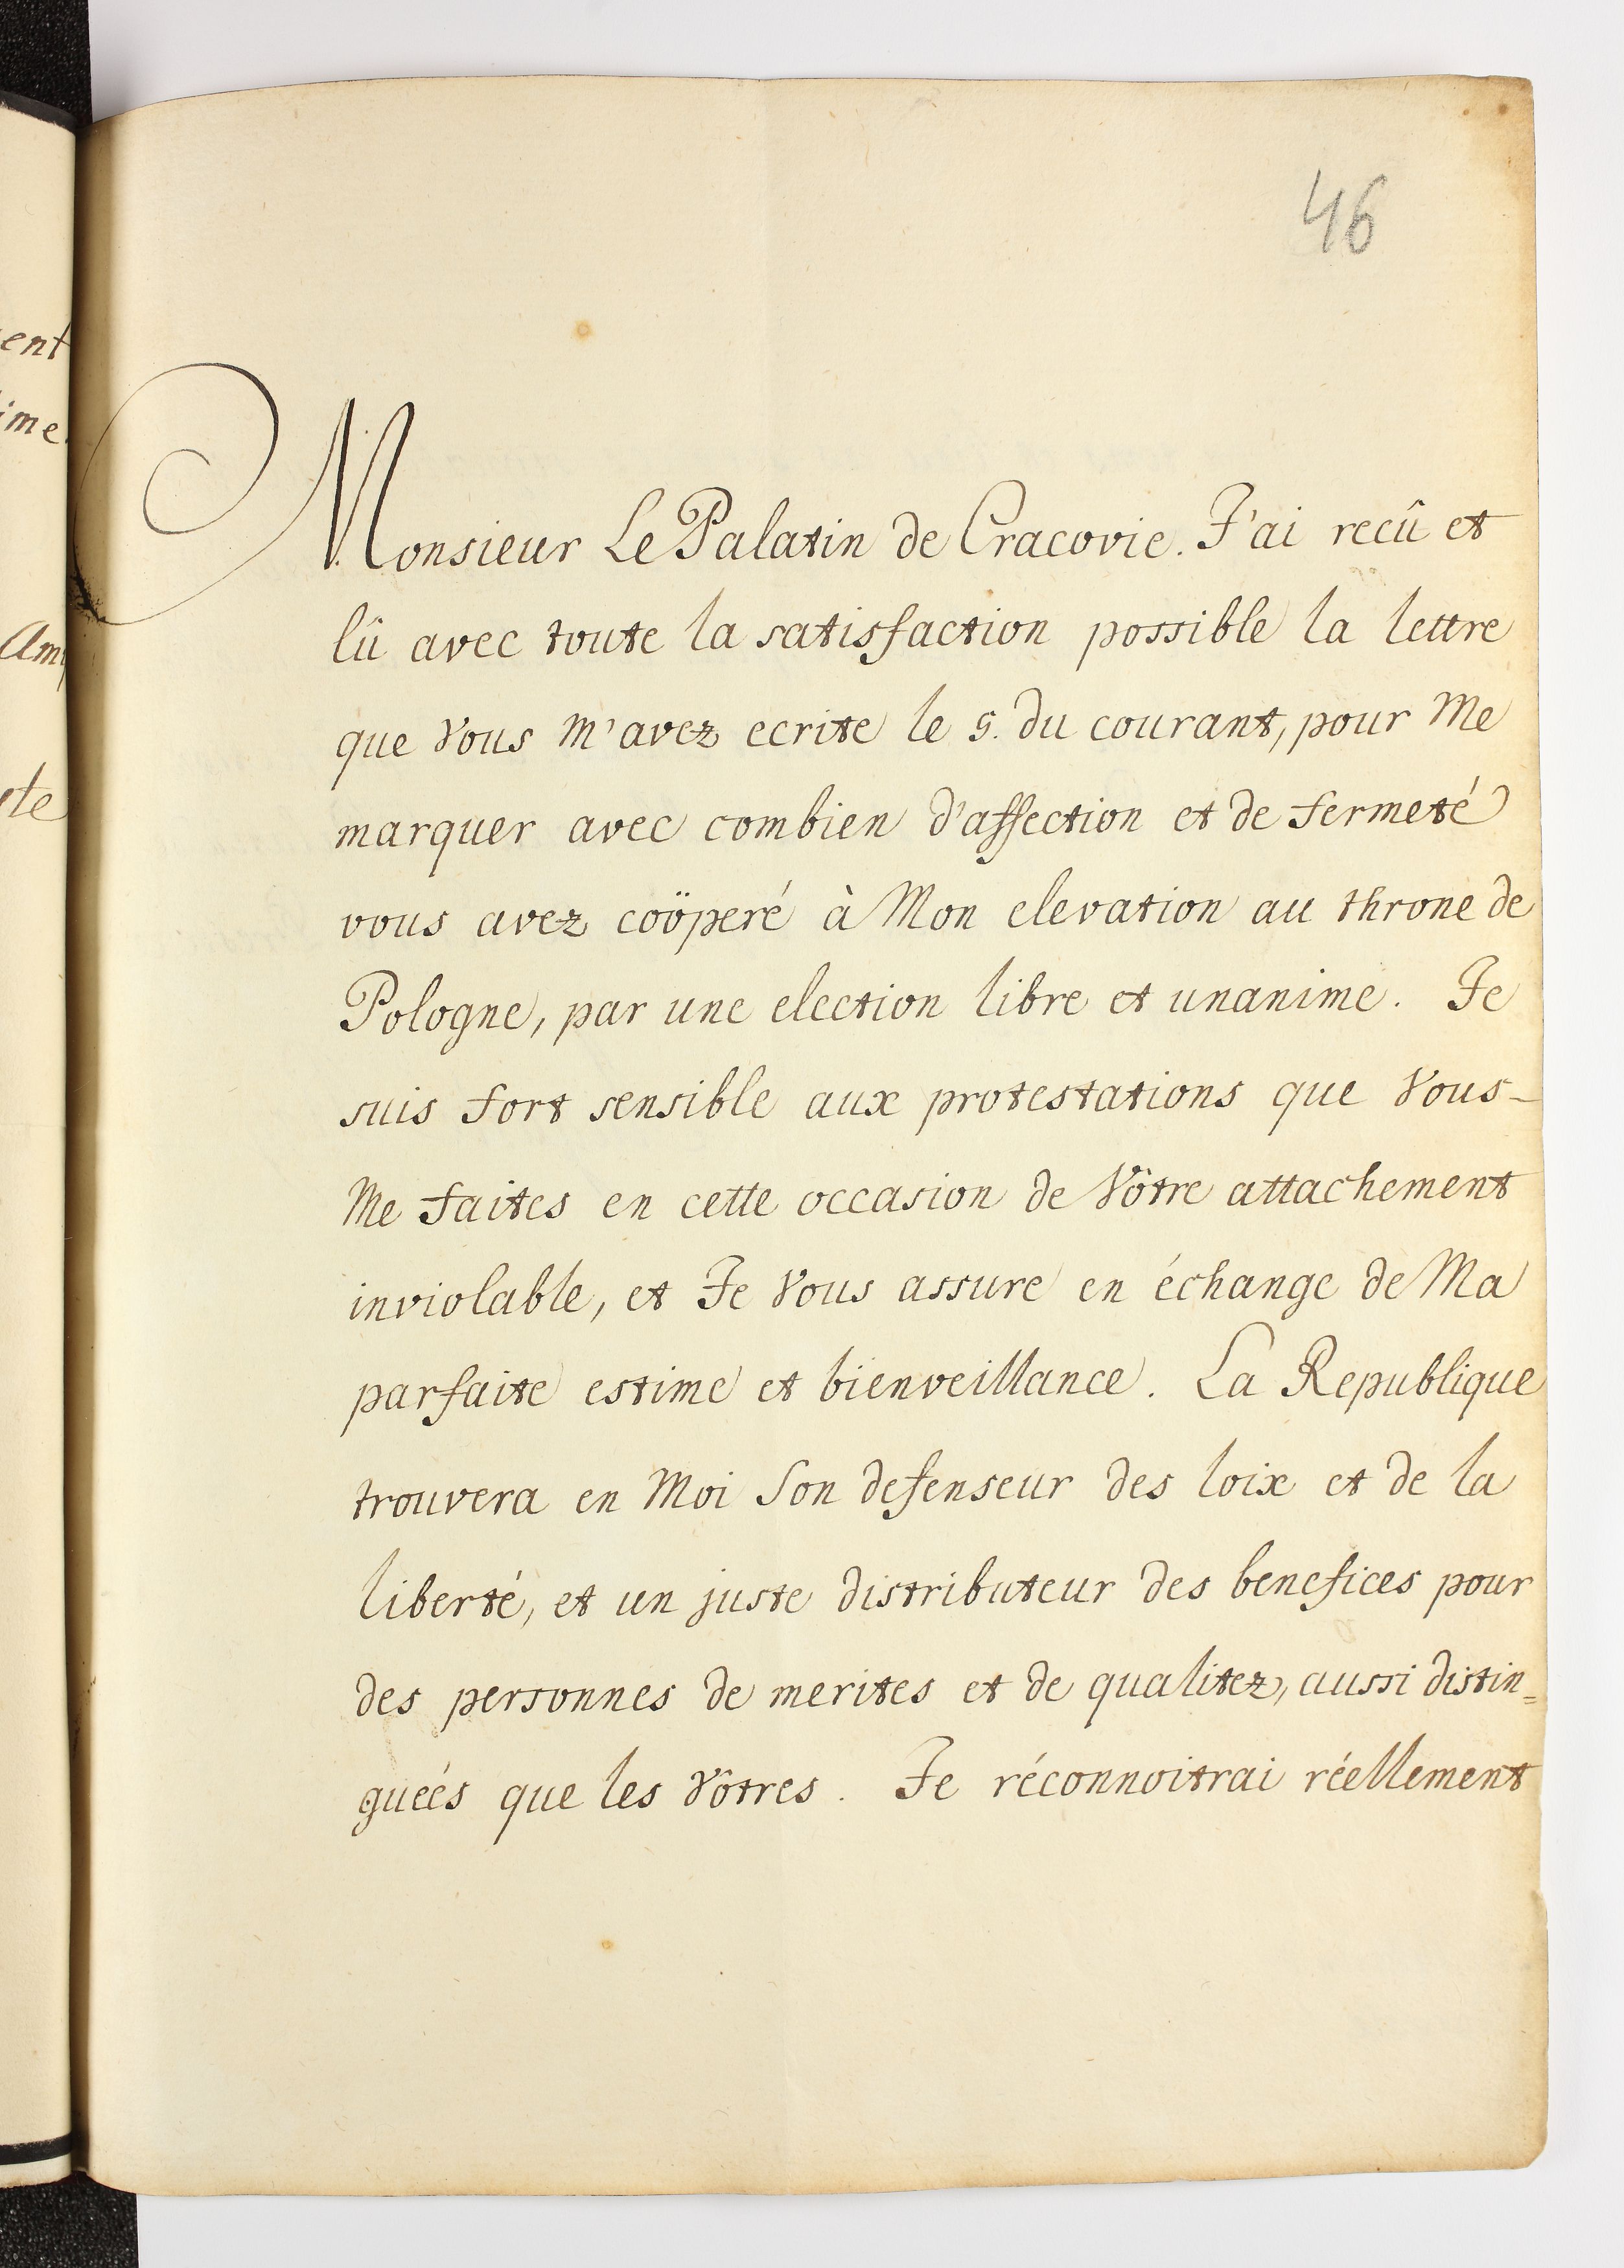 46
Monsieur Le Palatin de Cracovie. J'ai recû et
lû avec toute la satisfaction possible la lettre
que Vous M'avez ecrite le 5. du courant, pour Me
marquer avec combien d'affection et de fermeté
vous avez coöperé à Mon elevation au throne de
Pologne, par une election libre et unanime. Je
suis fort sensible aux protestations que Vous-
Me faites en cette occasion de Vôtre attachement
inviolable, et Je Vous assure en échange de Ma
parfaite estime et bienveillance. La Republique
trouvera en Moi Son defenseur des loix et de la
liberté, et un juste distributeur des benefices pour
des personnes de merites et de qualitez, aussi distin=
gueés que les Vôtres. Je réconnoitrai réellement
ent
ime
Am
te